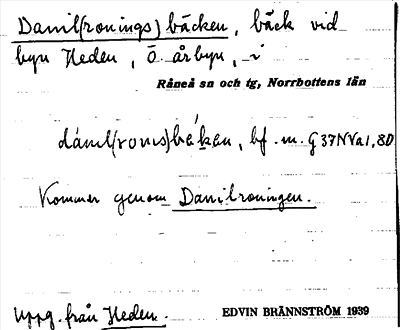 Danil(ronings)bäcken, bäck vid
byn Heden, Ö. årbyn, i
Råneå sn och tg, Norrbottens län
bf. m. G37NVa1,8D
Kommer genom Danilroningen.
Uppg. från Heden.
EDVIN BRÄNNSTRÖM 1939